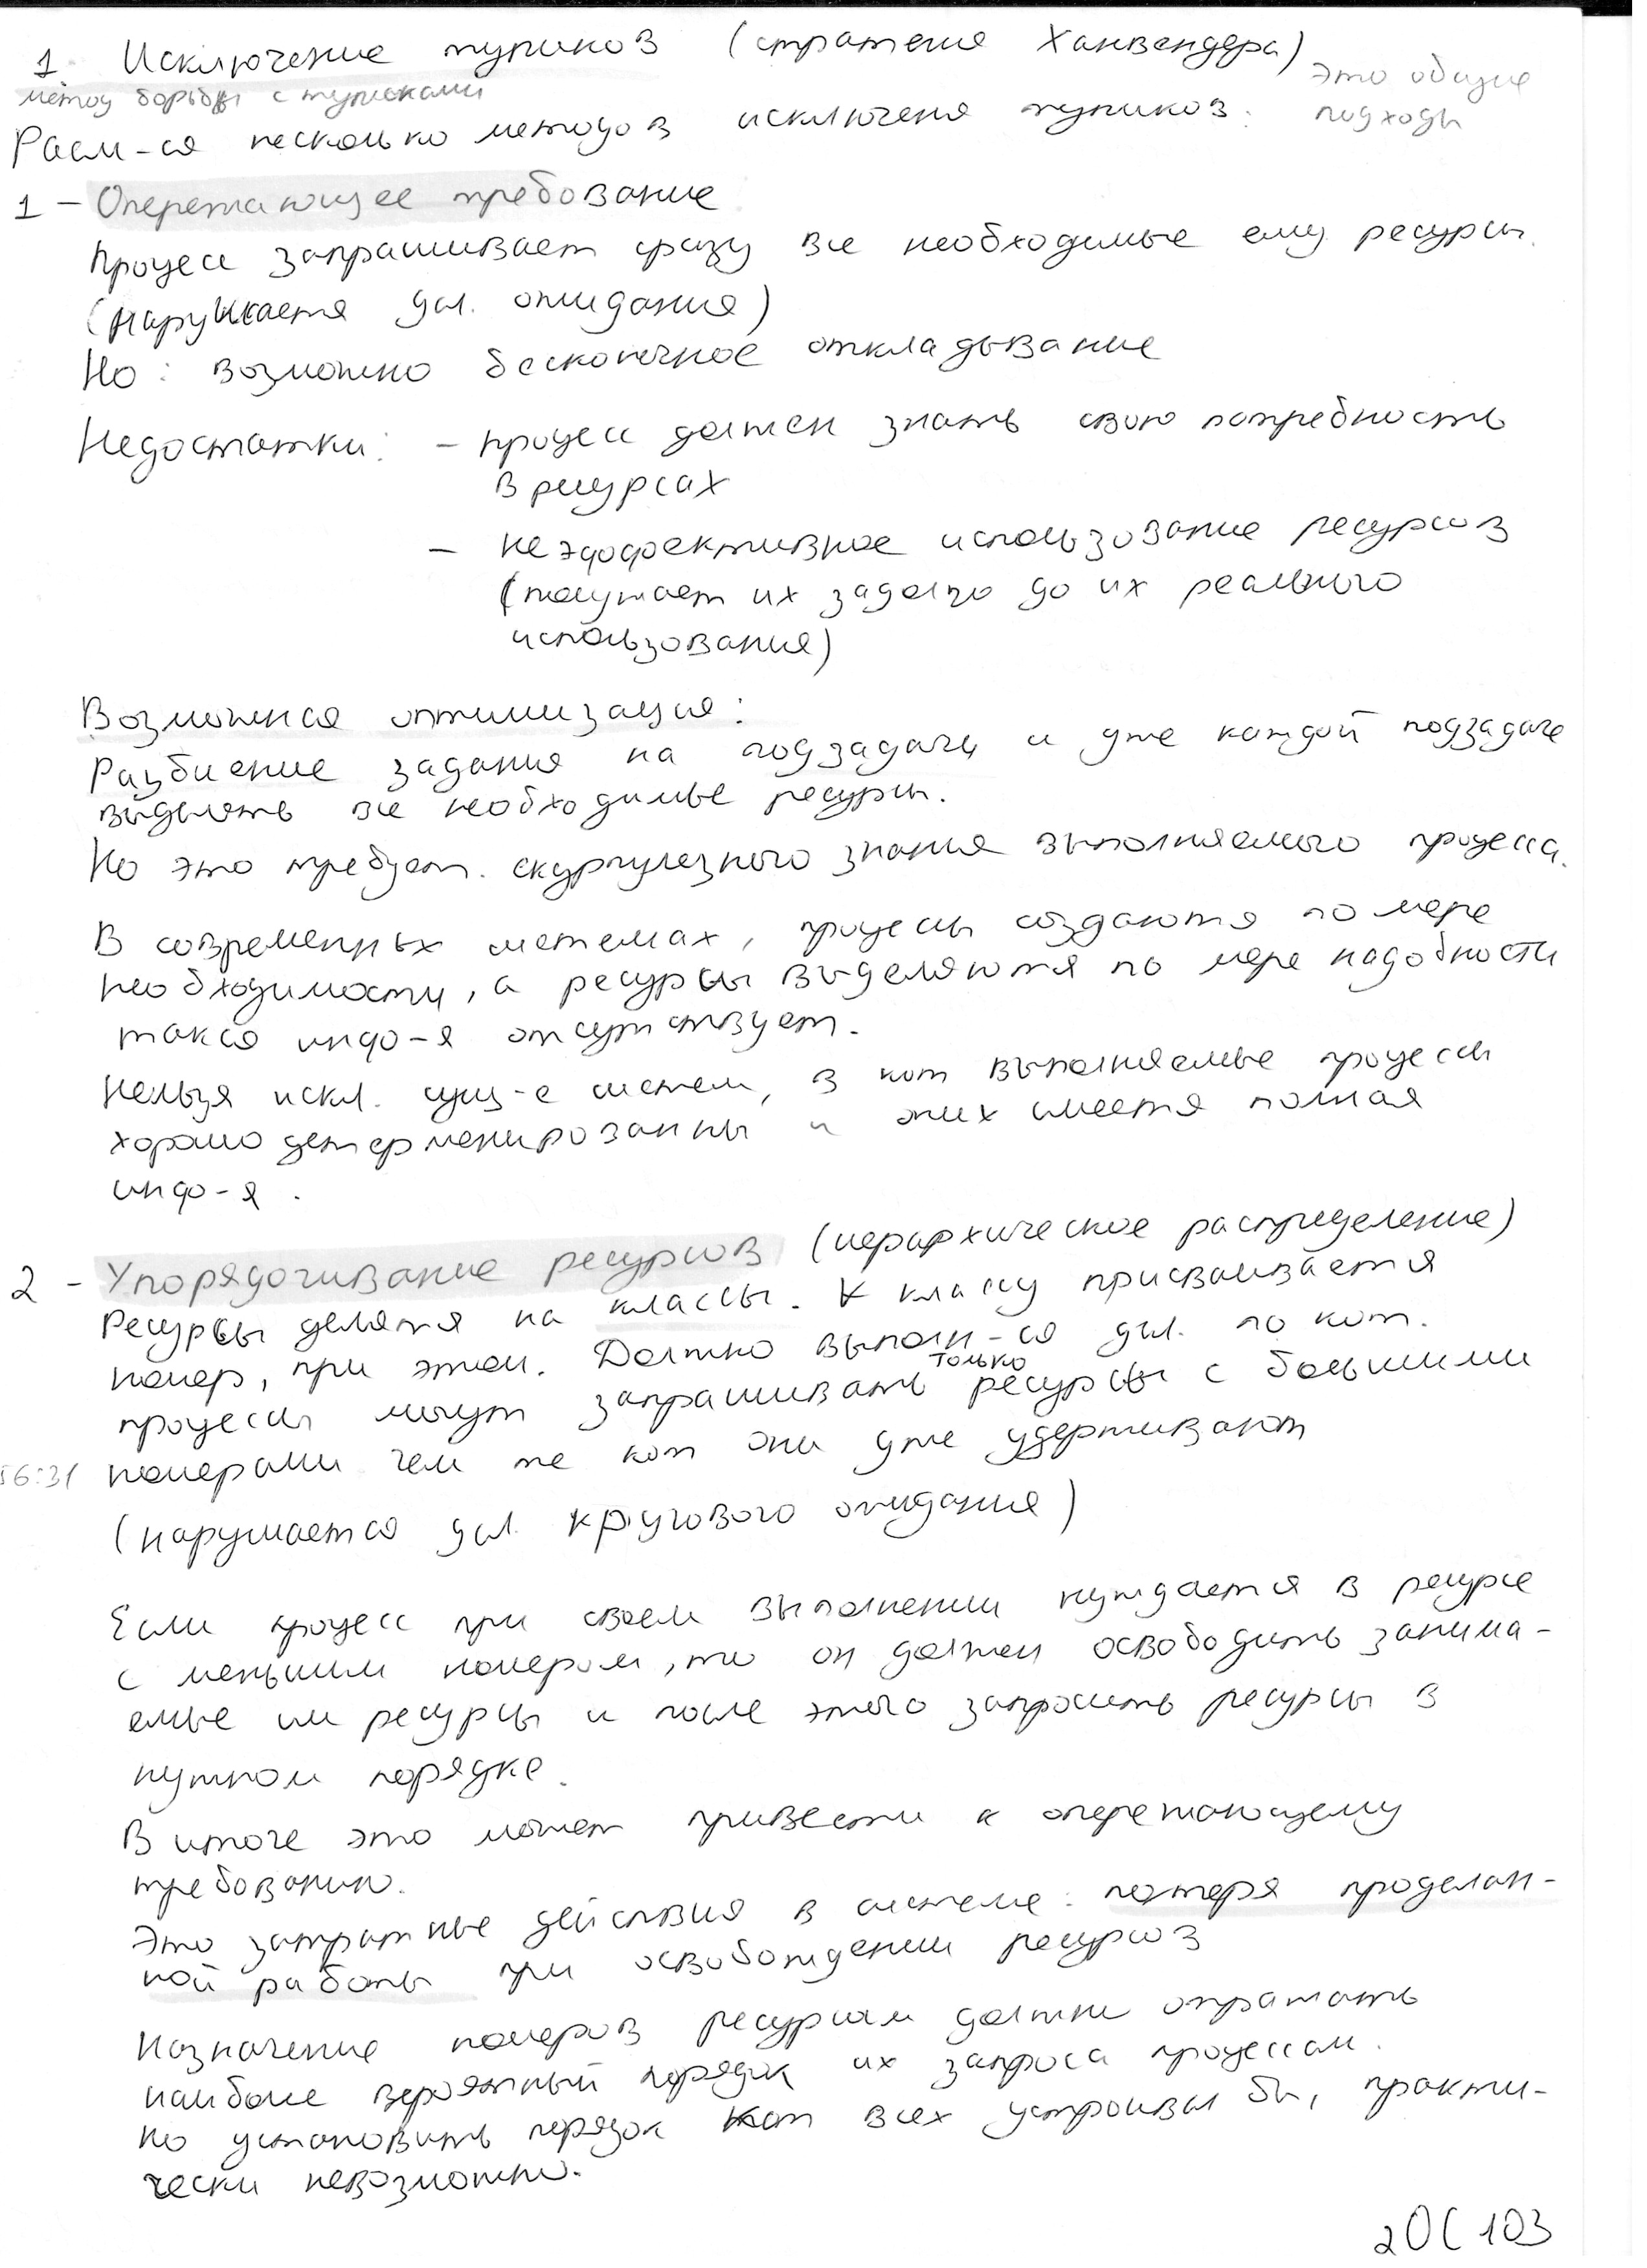 1. Исключение тупиков (стратегия Ханвендера)
это общие
метод борьбы с тупиками
подходы
Расм-ся несколько методов исключения тупиков:
1 – Опережающее требование
Процесс запрашивает сразу все необходимые ему ресурсы.
(нарушается усл. ожидания)
Но: возможно бесконечное откладывание
Недостатки: – процесс должен знать свою потребность
в ресурсах
– неэффективное использование ресурсов
(получает их задолго до их реального
использования)
Возможная оптимизация:
Разбиение задания на подзадачи и уже каждой подзадаче
выделять все необходимые ресурсы.
Но это требует. скурпулезного знания выполняемого процесса.
В современных системах, процессы создаются по мере
необходимости, а ресурсы выделяются по мере надобности
такая инфо-я отсутствует.
Нельзя искл. сущ-е систем, в кот выполняемые процессы
хорошо детерменированны и о них имеется полная
инфо-я.
2 – Упорядочивание ресурсов (иерархическое распределение)
Ресурсы делятся на классы. К классу присваивается
номер, при этом. Должно выполн-ся усл. по кот.
процессы могут запрашивать только ресурсы с большими
56:31 номерами чем те кот они уже удерживают
(нарушается усл. кругового ожидания)
Если процесс при своем выполнении нуждается в ресурсе
с меньшим номером, то он должен освободить занима-
емые им ресурсы и после этого запросить ресурсы в
нужном порядке.
В итоге это может привести к опережающему
требованию.
Это затратные действия в системе: потеря проделан-
ной работы при освобождении ресурсов
Назначение номеров ресурсам должны отражать
наиболее вероятный порядок их запроса процессам.
Но установить порядок кот всех устроивал бы, практи-
чески невозможно.
2ОС 103